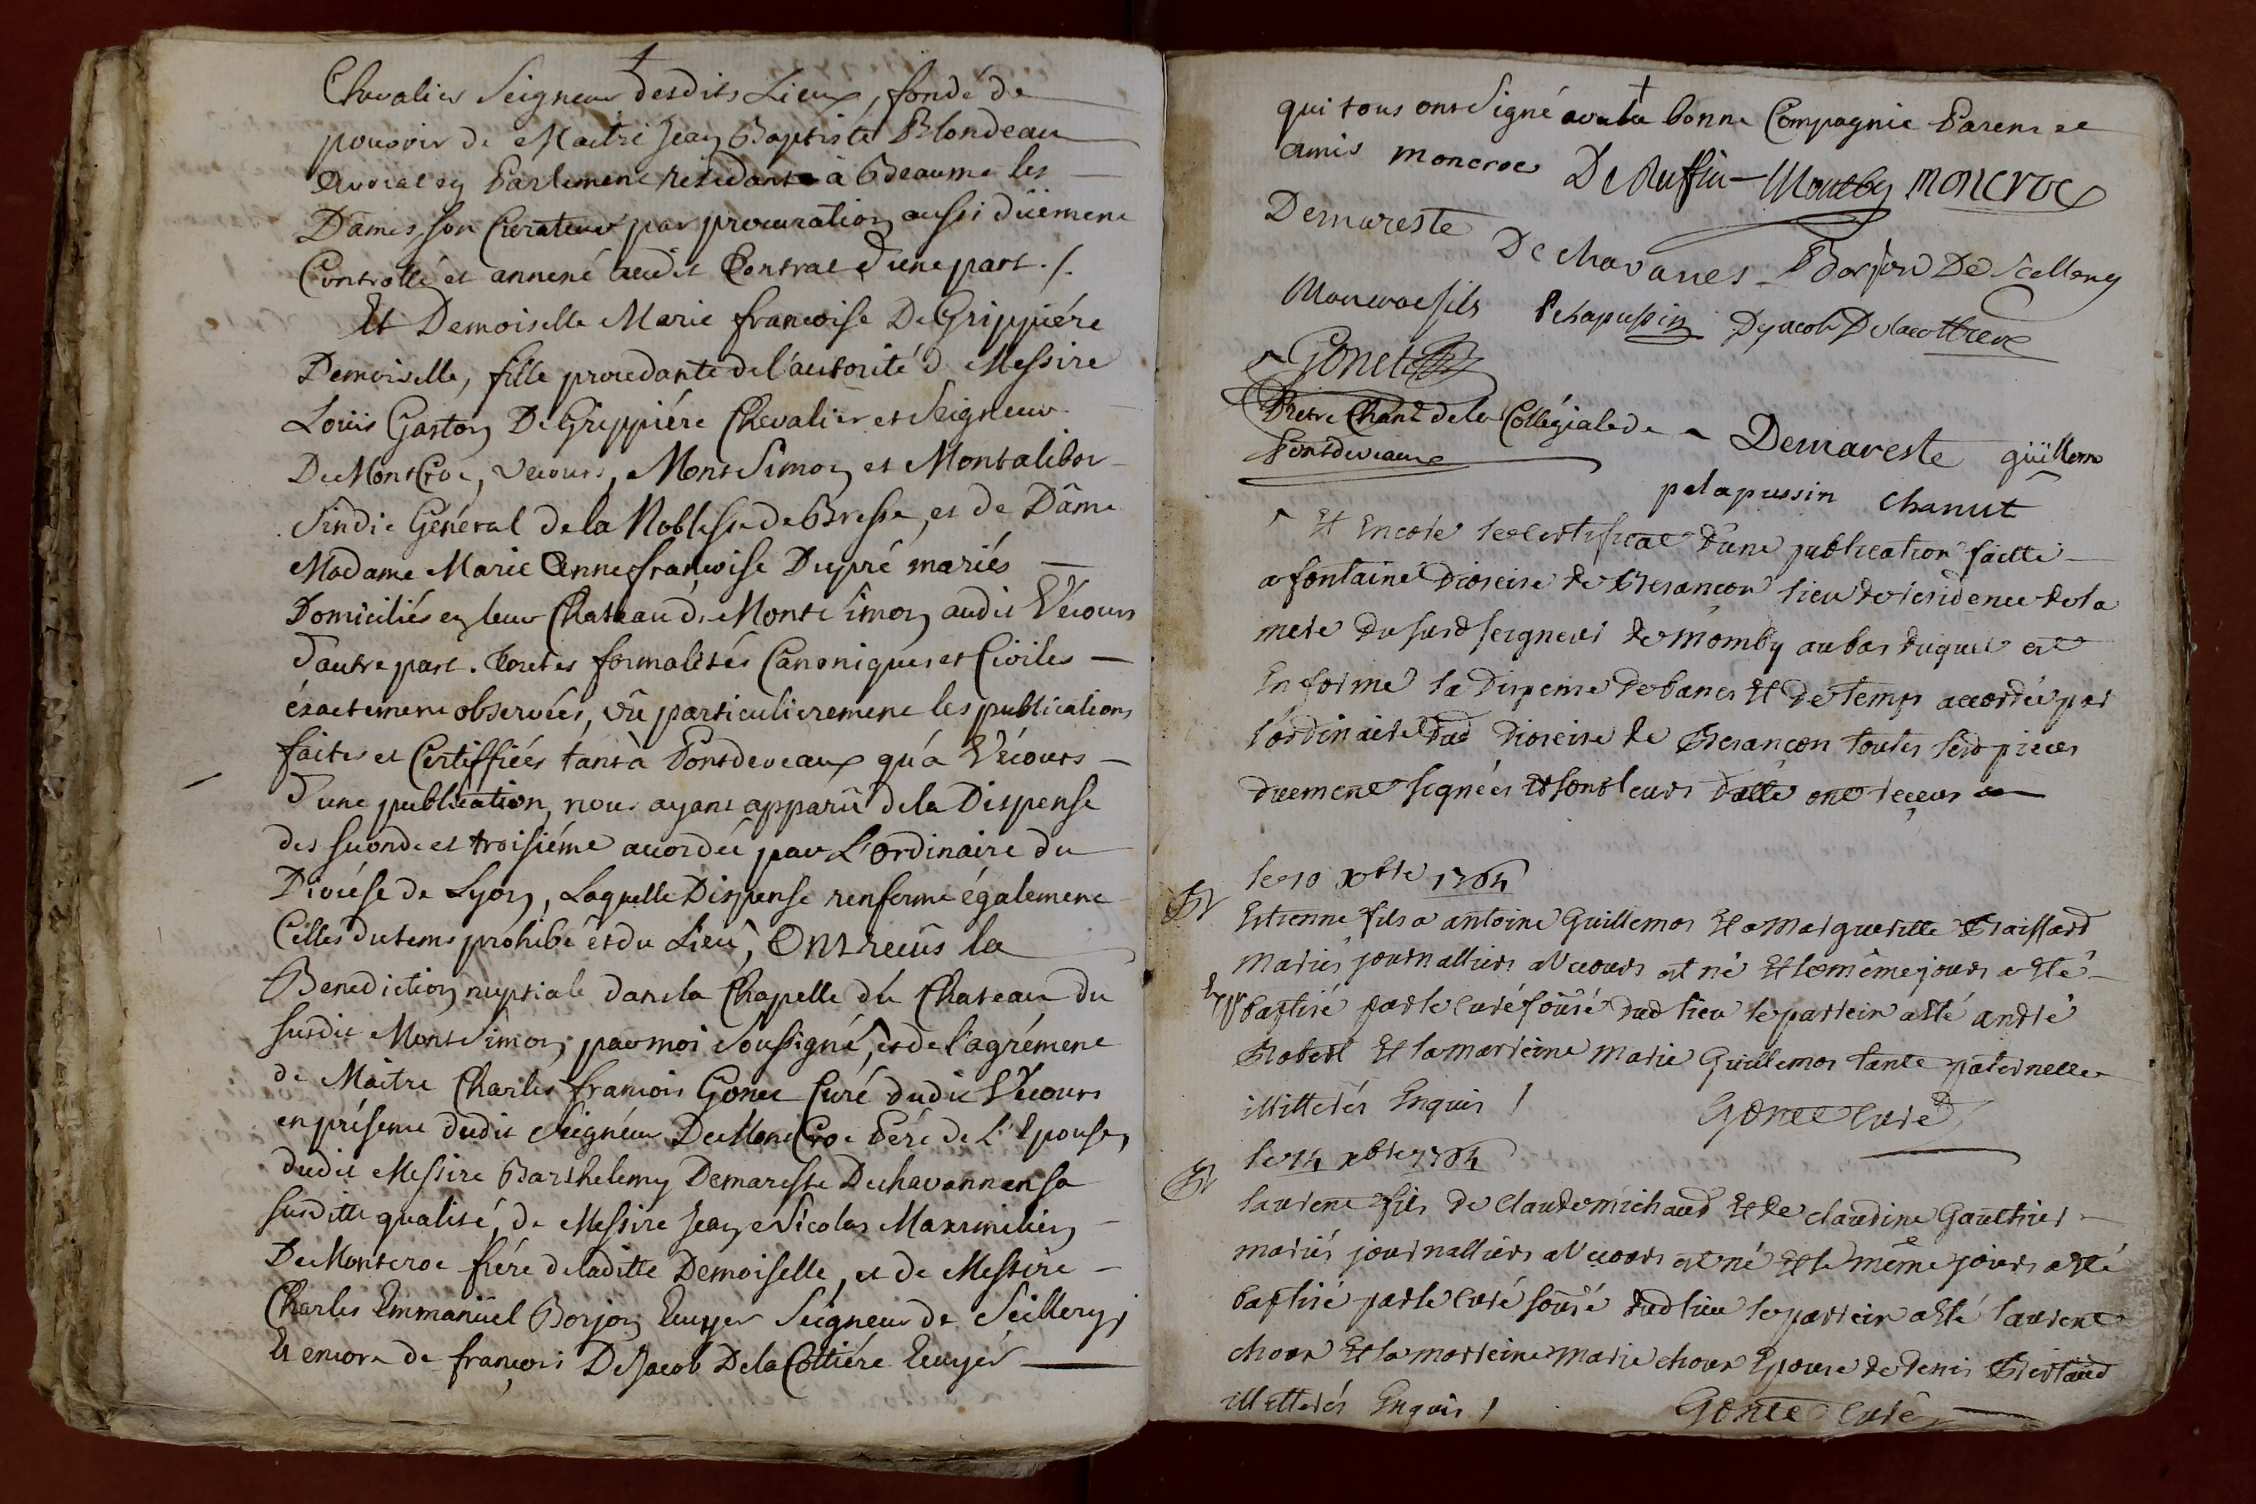 Chevalier Seigneur desdits Lieux, fondé de
pouvoir de Maitre Jean Baptiste Blondeau
Avocat en Parlement résidant à Beaume les
Dames, son Curateur par procuration aussi düement
Controllé et annexé audit Contrat d'une part ./.
Et Demoiselle Marie francoise De Grippiére
Demoiselle, fille procedante de l'autorité d Messire
Loüis Gaston De Grippiére Chevalier et Seigneur
De MontCroc, Vecours, MontSimon et Montalibor
Sindic Genéral de la Noblesse de Bresse, et de Dâme
Madame Marie Anne francoise Dupré mariés
Domiciliés en leur Chateau de Mont Simon audit Vécours
d'autre part. toutes formalités Canoniques et Civiles
éxactement observées, vû particulierement les publications
faites et Certiffiées tant à Pontdeveaux qu'a Vécours
d'une publication, nous ayant apparu de la Dispense
des seconde et troisiéme accordée par L'ordinaire du
Diocése de Lyon, Laquelle Dispense renferme également
Celles du tems prohibé et du Lieu, Ont reçûs la
Benediction nuptiale dans la Chapelle du Chateau du
susdit Mont Simon, par moi Soussigné, et de l'agrément
de Maitre Charles francois Gonet Curé dudit Vécours
en présence dudit Seigneur De MontCroc Pére de L'Epouse,
dudit Messire Barthelemy Demareste Dechavannen sa
susditte qualité, de Messire Jean Nicolas Maximilien
De Montcroc frére de laditte Demoiselle, et de Messire
Charles Emmanüel Borjon Ecuyer Seigneur de Scillery,
Et encore de françois De Jacob De la Cottiére Ecuyer
qui tous ont Signé avec la bonne Compagnie Parens et
amis moncroc De Ruffin Montby moncroc
Demareste De chavanes Borjon De Scellery
Moncroc fils Pelapussin De jacob De lacottiere
Gonet
Prêtre Chan.e de la Collégiale de
Pontdeveaux
Demareste güillem
pelapussin Chanut
Et Encore le certificat d'une publication faitte
a fontaine Diocèse de Besançon lieu de residence de la
mere du susd seigneur de momby au bas duquel est
En forme la Dispense de bancs Et de temps accordée par
l'ordinaire dud Diocèse de Besançon toutes lesd pieces
duement signées
le 10 xbre 1764
Estienne fils a antoine Guillemos Et a marguerite Braissard
mariés journalliers a Vecours est né Et le même jours a Eté
baptisé par le curé soussé dud lieu le parrein a Eté andré
Robert Et la marreine marie Guillemos tante paternelle
illitterés Enquis /
Gonet curé
le 14 xbre 1764
laurent fils de claude michaud Et de claudine Gaulthier
mariés journalliers a Vecours est né Et le même jours a Eté
baptisé par le curé soussé dud lieu le parrein a Eté laurent
choux Et la marreine marie choux Epouse de denis Bertaud
illitterés Enquis /
Gonet curé